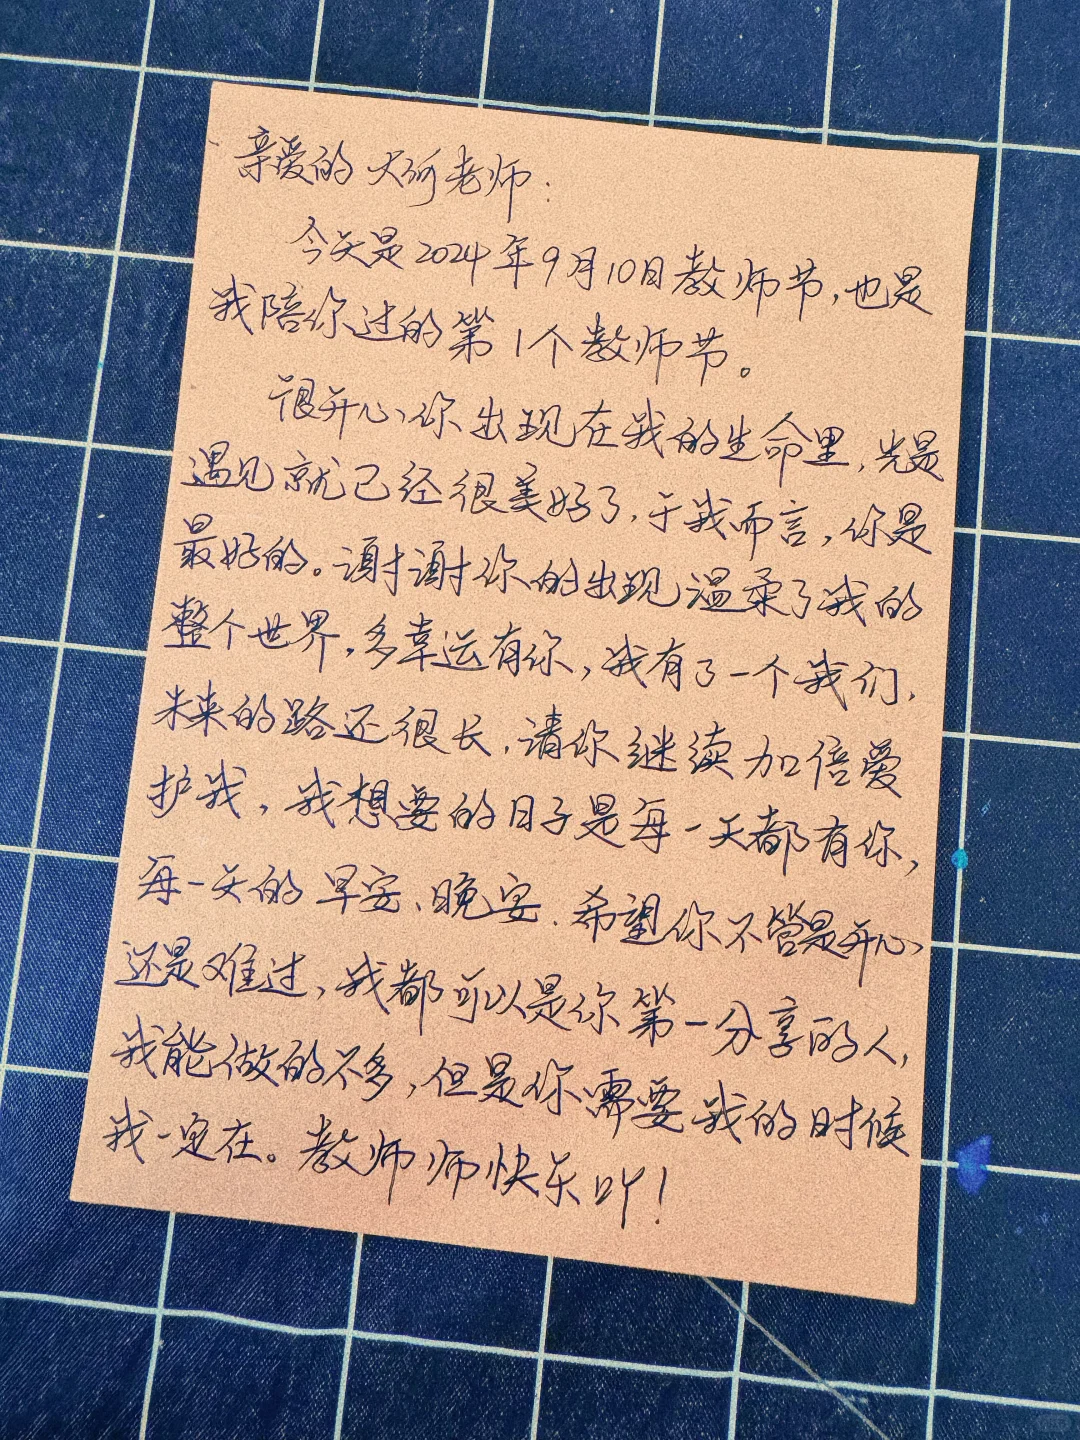 亲爱的大何老师:
今天是2024年9月10日教师节,也是
我陪你过的第1个教师节。
很开心你出现在我的生命里,光是
遇见就已经很美好了,于我而言,你是
最好的。谢谢你的出现温柔了我的
整个世界,多幸运有你,我有了一个我们,
未来的路还很长,请你继续加倍爱
护我,我想要的日子是每一天都有你,
每一天的早安、晚安.希望你不管是开心
还是难过,我都可以是你第一分享的人,
我能做的不多,但是你需要我的时候
我一定在。教师师快乐吖!